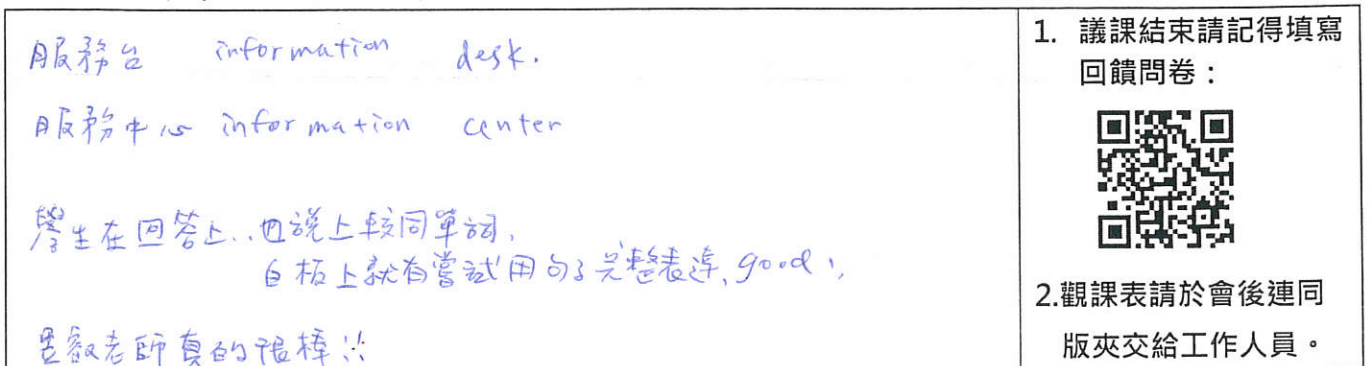 服務台 information desk.
服務中心 information center
學生在回答上,口說上較同單詞,
白板上就有嘗試用句子完整表達, good!,
老師真的很棒!!
1. 議課結束請記得填寫
回饋問卷：
2.觀課表請於會後連同
版夾交給工作人員。